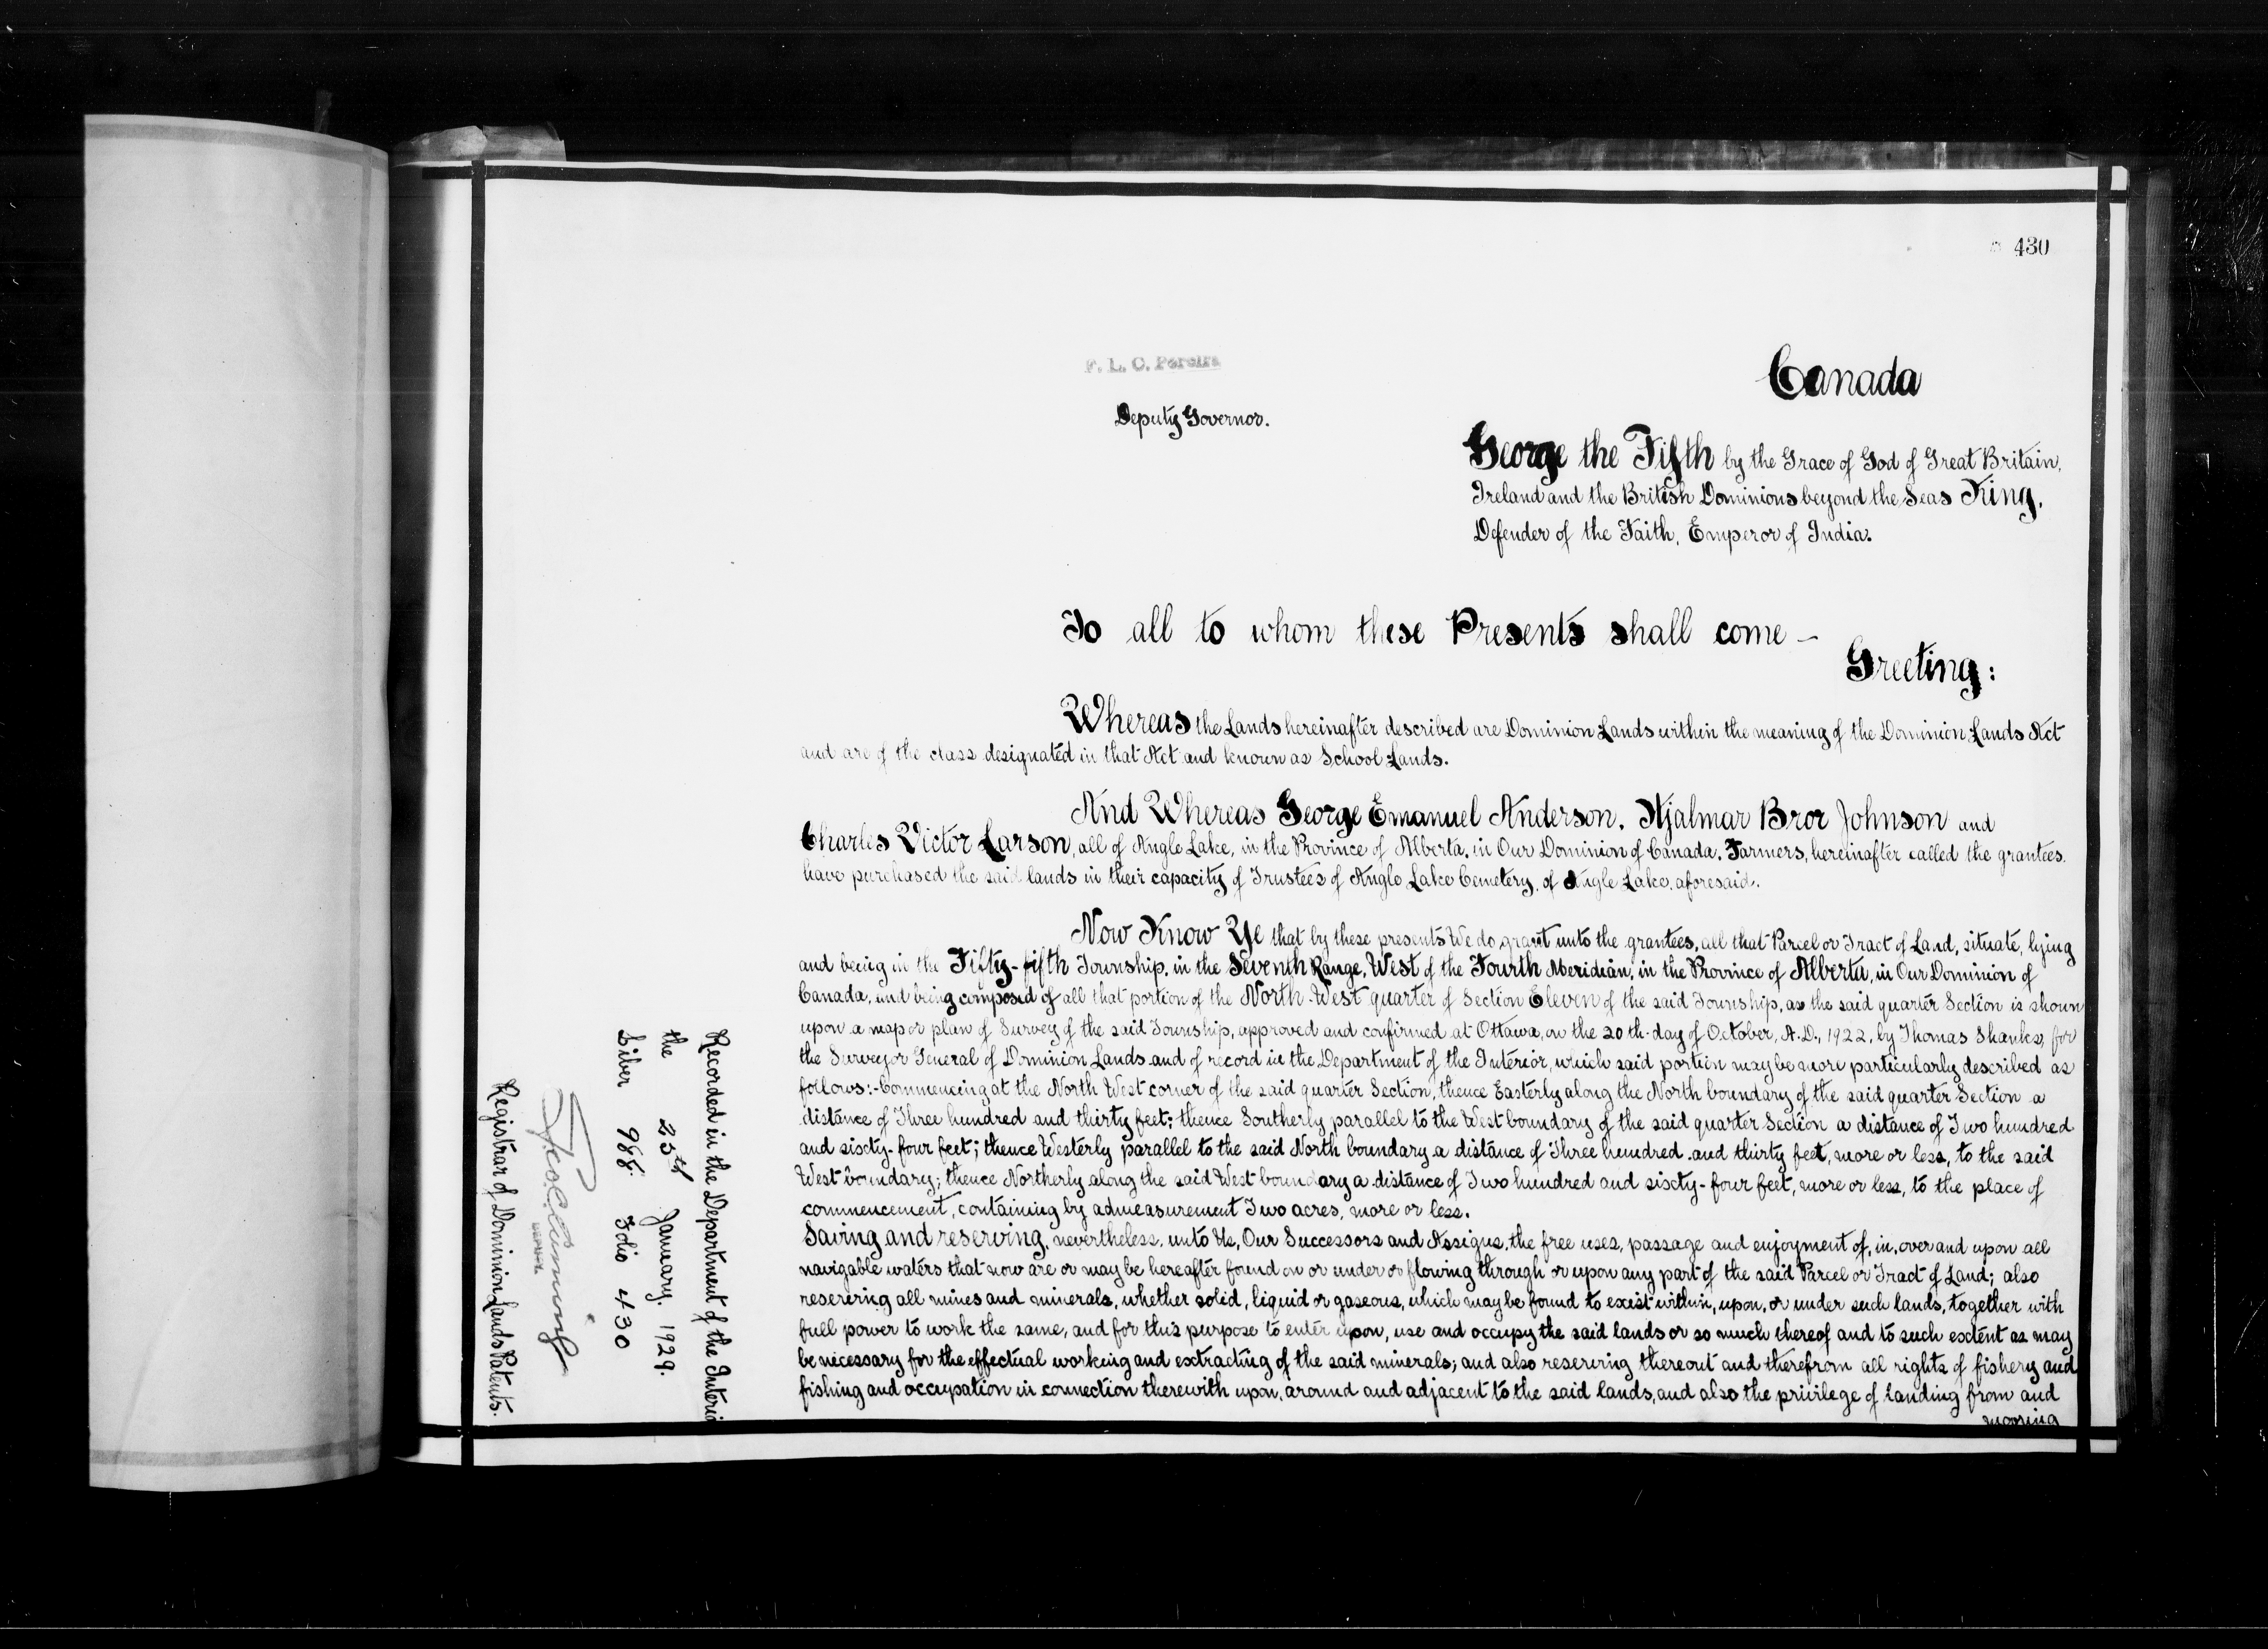 430
F. L. C. Pereira
Deputy Governor.
Canada
George the Fifth by the Grace of God of Great Britain,
Ireland and the British Dominions beyond the Seas King,
Defender of the Faith, Emperor of India.
To all to whom these Presents shall come —
Greeting:
Whereas the Lands hereinafter described are Dominion Lands within the meaning of the Dominion Lands Act
and are of the class designated in that Act and known as School Lands.
And Whereas George Emanuel Anderson, Hjalmar Bror Johnson and
Charles Victor Larson, all of Angle Lake, in the Province of Alberta, in Our Dominion of Canada, Farmers, hereinafter called the grantees.
have purchased the said lands in their capacity of Trustees of Angle Lake Cemetery, of Angle Lake, aforesaid.
Now Know Ye that by these presents We do grant unto the grantees, all that Parcel or Tract of Land, situate, lying
and being in the Fifty-fifth Township, in the Seventh Range, West of the Fourth Meridian, in the Province of Alberta, in Our Dominion of
Canada, and being composed of all that portion of the North-West quarter of Section Eleven of the said Township, as the said quarter Section is shown
upon a map or plan of Survey of the said Township, approved and confirmed at Ottawa, on the 20th day of October, A.D., 1922, by Thomas Shanks, for
the Surveyor General of Dominion Lands and of record in the Department of the Interior, which said portion may be more particularly described as
follows:- Commencing at the North West corner of the said quarter Section, thence Easterly along the North boundary of the said quarter Section a
distance of Three hundred and thirty feet; thence Southerly parallel to the West boundary of the said quarter Section a distance of Two hundred
and sixty-four feet; thence Westerly parallel to the said North boundary a distance of Three hundred and thirty feet, more or less, to the said
West boundary; thence Northerly along the said West boundary a distance of Two hundred and sixty-four feet, more or less, to the place of
commencement, containing by admeasurement Two acres, more or less.
Saving and reserving, nevertheless, unto Us, Our Successors and Assigns, the free uses, passage and enjoyment of, in, over and upon all
navigable waters that now are or may be hereafter found on or under or flowing through or upon any part of the said Parcel or Tract of Land; also
reserving all mines and minerals, whether solid, liquid or gaseous, which may be found to exist within, upon, or under such lands, together with
full power to work the same, and for this purpose to enter upon, use and occupy the said lands or so much thereof and to such extent as may
be necessary for the effectual working and extracting of the said minerals; and also reserving thereout and therefrom all rights of fishery and
fishing and occupation in connection therewith upon, around and adjacent to the said lands, and also the privilege of landing from and
mooring
Recorded in the Department of the Interior
the 25th January, 1929.
Liber 988 Folio 430
Registrar of Dominion Lands Patents.